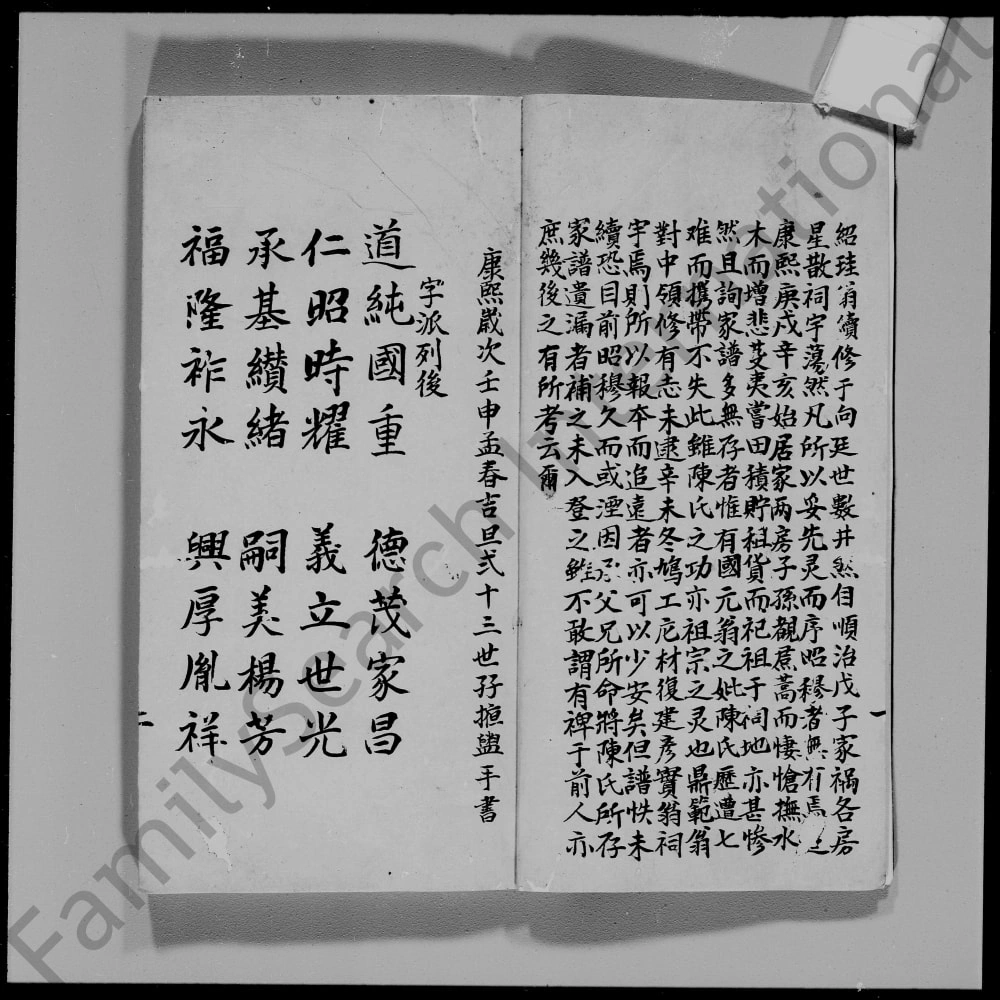 紹珪翁續修于向廷世數井然自順治戊子家禍各房
星散祠宇蕩然凡所以妥先灵而序昭穆者無有焉
康熙庚戌辛亥始居家两房子孫覩蒿而悽愴撫水
木而增悲芟夷嘗田積貯祖貨而祀祖于祠地亦甚慘
然且詢家譜多無存者惟有國元翁之妣陳氏歷遭七
难而攜帶不失此雖陳氏之功亦祖宗之灵也鼎範翁
對中領修有志未逮辛未冬鳩工庀材復建彥實翁祠
宇焉則所以報本而追遠者亦可以少安矣但譜帙未
續恐目前昭穆久而或湮因承父兄所命將陳氏所存
家譜遺漏者補之未入登之雖不敢謂有裨于前人亦
庶幾後之有所考云爾
康熙歲次壬申孟春吉旦弍十三世孖手書
字派列後
道純國重 德茂家昌
仁昭時耀 義立世光
承基纘緒 嗣美楊芳
福隆祚永 興厚胤祥
FamilySearch International